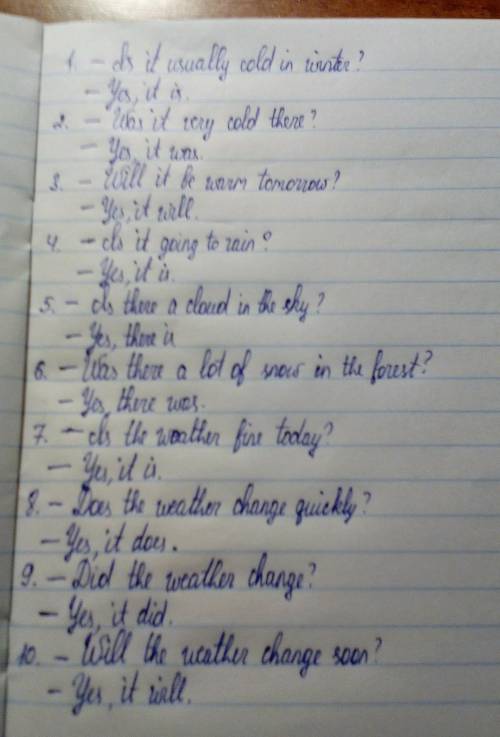 1. – Is it usually cold in winter?
– Yes, it is.
2. – Was it very cold there?
– Yes, it was.
3. – Will it be warm tomorrow?
– Yes, it will.
4. – Is it going to rain?
– Yes, it is.
5. – Is there a cloud in the sky?
– Yes, there is
6. – Was there a lot of snow in the forest?
– Yes, there was.
7. – Is the weather fine today?
– Yes, it is.
8. – Does the weather change quickly?
– Yes, it does.
9. – Did the weather change?
– Yes, it did.
10. – Will the weather change soon?
– Yes, it will.